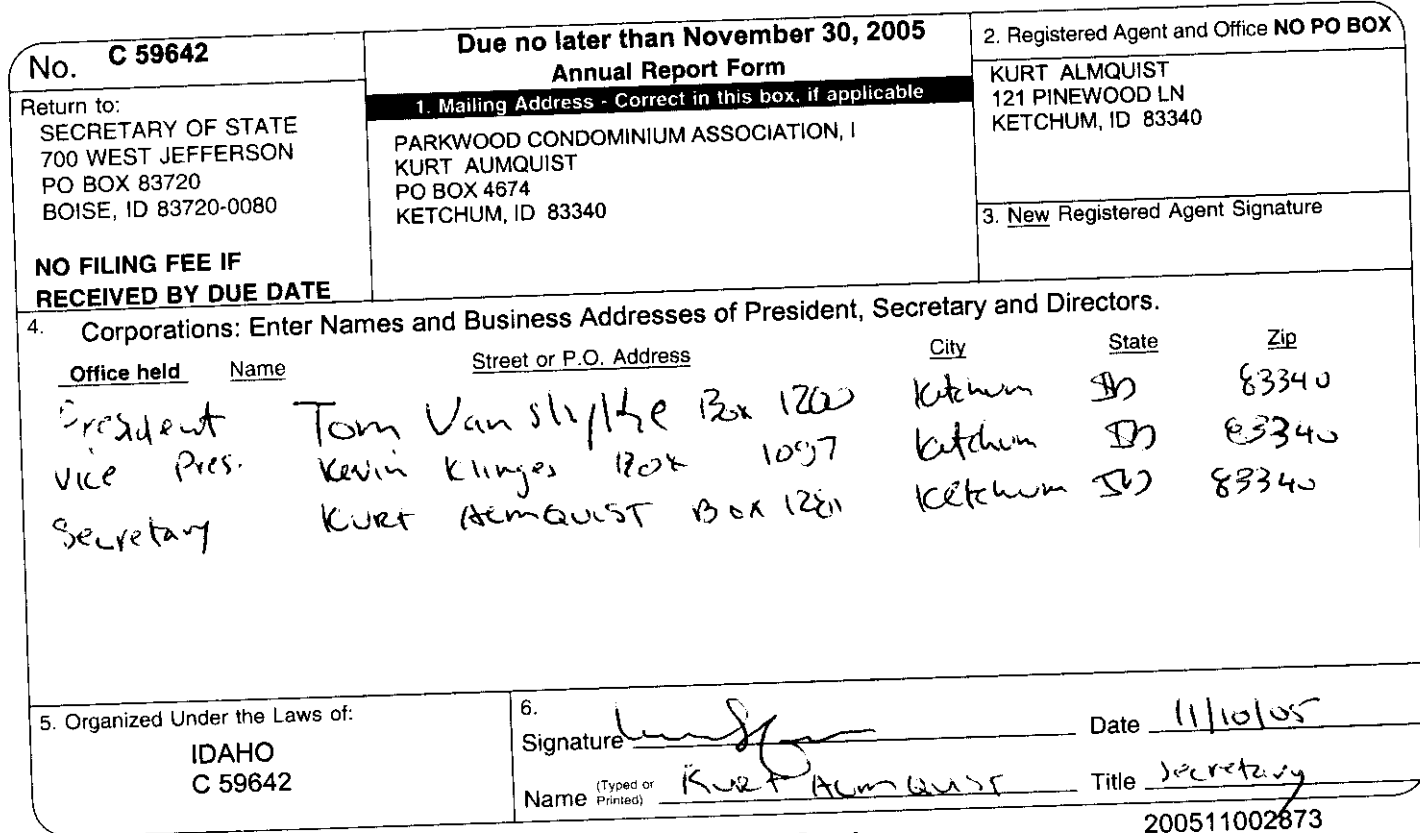 No. C 59642
Return to:
SECRETARY OF STATE
700 WEST JEFFERSON
PO BOX 83720
BOISE, ID 83720-0080
NO FILING FEE IF
RECEIVED BY DUE DATE
Due no later than November 30, 2005
Annual Report Form
1. Mailing Address - Correct in this box, if applicable
PARKWOOD CONDOMINIUM ASSOCIATION, I
KURT AUMQUIST
PO BOX 4674
KETCHUM, ID 83340
2. Registered Agent and Office NO PO BOX
KURT ALMQUIST
121 PINEWOOD LN
KETCHUM, ID 83340
3. New Registered Agent Signature
4. Corporations: Enter Names and Business Addresses of President, Secretary and Directors.
Office held Name Street or P.O. Address City State Zip
President Tom Van Slyke Box 1200 Ketchum ID 83340
Vice Pres. Kevin Klinges Box Ketchum ID 83340
Secretary Kurt Almquist Box Ketchum ID 83340
5. Organized Under the Laws of:
IDAHO
C 59642
6.
Signature Date 11/10/05
Name (Typed or Printed) Kurt Almquist Title Secretary
200511002873